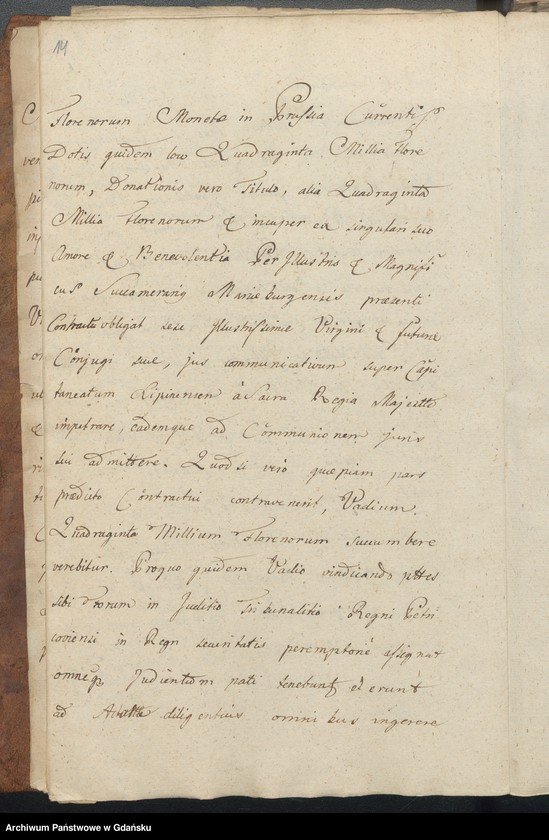 14
Florenorum Monetæ in Prussia Currentis
Dotis quidem loco Quadraginta Millia Flore
norum, Donationis vero Titulo, alia Quadraginta
Millia Florenorum & insuper ex singulari suo
Amore & Benevolentia PerIllustris & Magnifi
cus Succamerarig Mariæburgensis præsenti
Contractu obligat sese Illustrissimæ Virgini & futuræ
Cònjugi suæ, jus communicativum super Capi
taneatum Ripinensem à Sacra Regia Majestte
impetrare, eademque ad Communionem juris
sui admittere. Quod si verò quæpiam pars
prædicto Contractui contravenerit, Vadium
Quadraginta Millium Florenorum succumbere
verebitur. Pro quo quidem Vadio vindicando pttes
sibi Forum in Juditio Tribunalitio Regni Petri
coviensi in Regn severitatis peremptoriè assignat
omneq Judicium pati tenebunt et erunt
ad diligentius omnibus ingerere
Archiwum Państwowe w Gdańsku